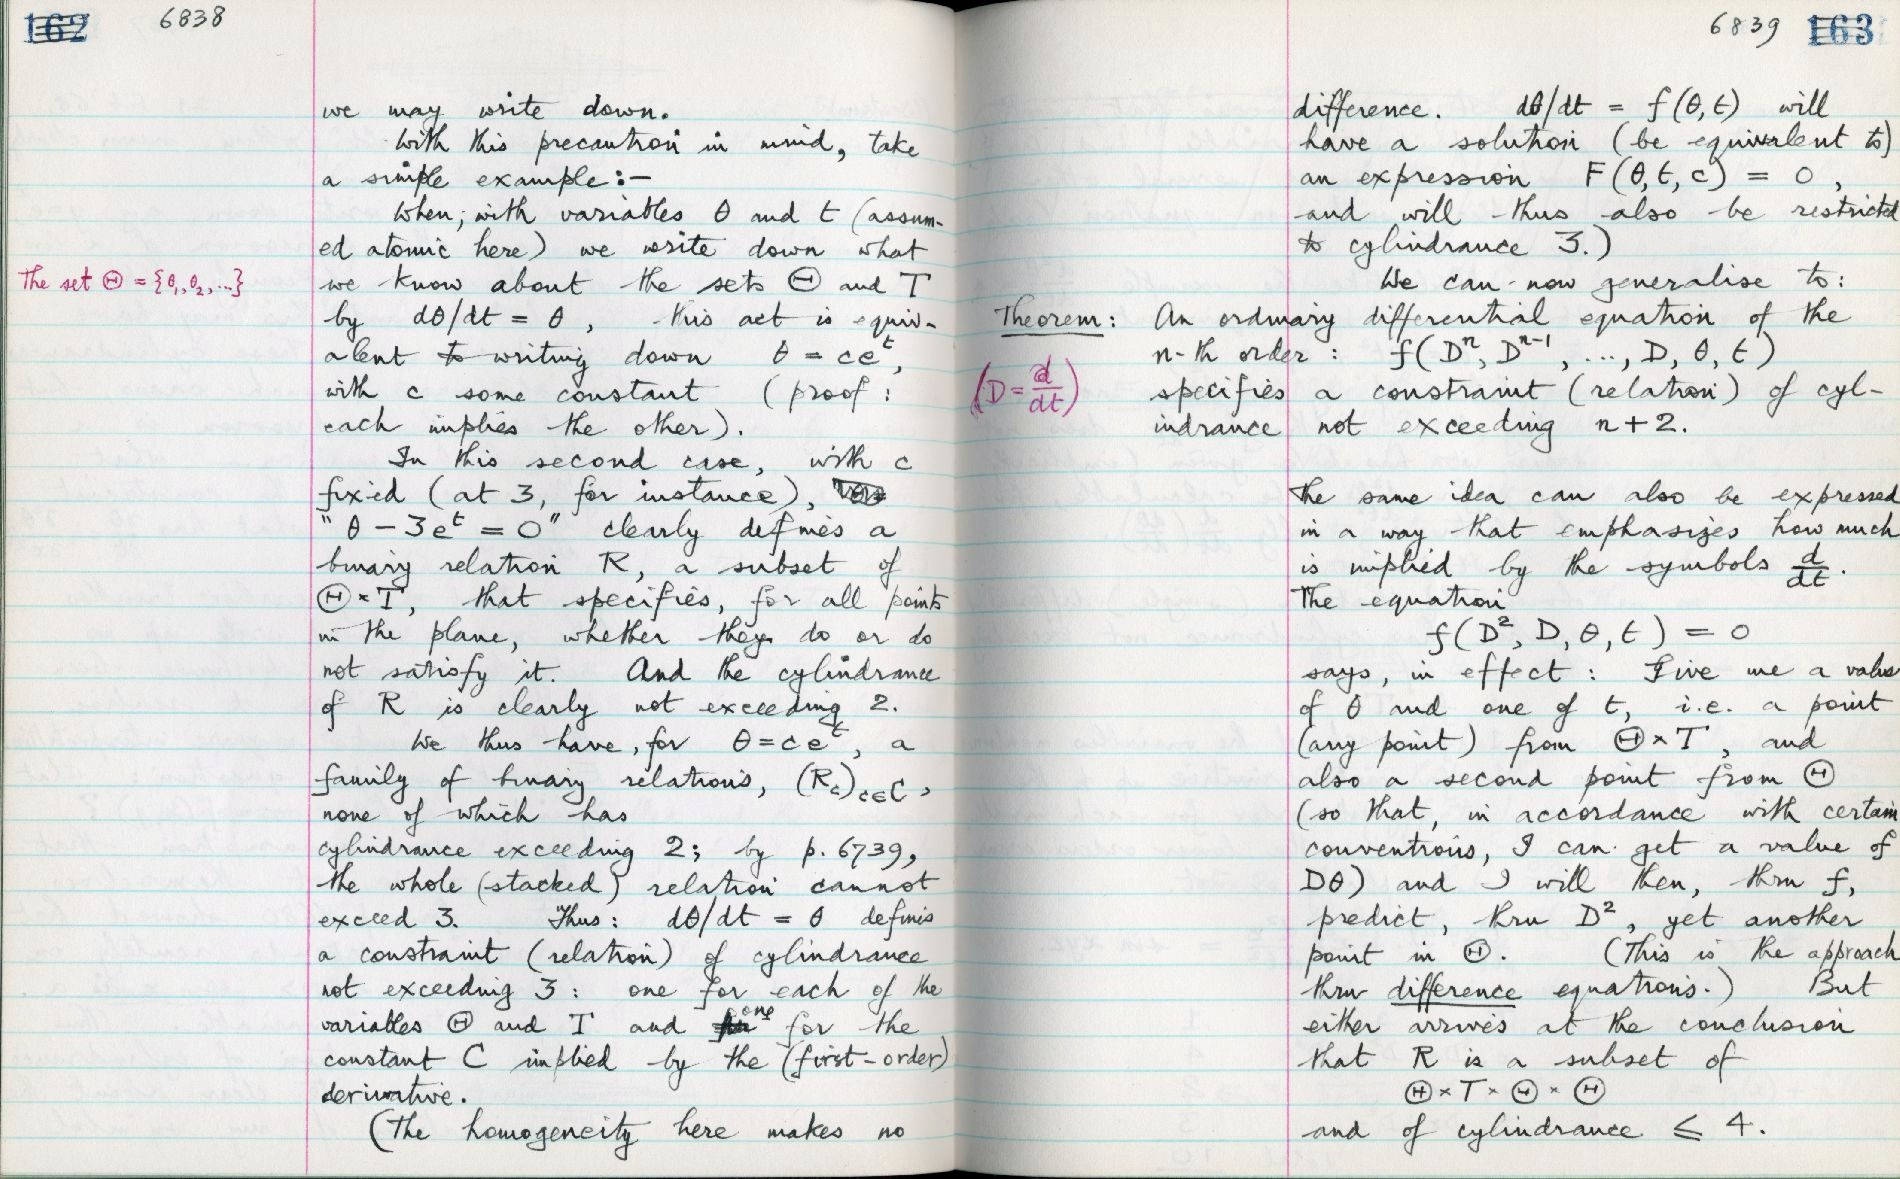 162 6838
we may write down.
With this precaution in mind, take
a simple example:—
When, with variables θ and t (assum-
ed atomic here) we write down what
The set Θ = {θ₁, θ₂, ...}
we know about the sets Θ and T
by dθ/dt = θ, this act is equiv-
alent to writing down θ = ceᵗ,
with c some constant (proof:
each implies the other).
In this second case, with c
fixed (at 3, for instance),
"θ − 3eᵗ = 0" clearly defines a
binary relation R, a subset of
Θ × T, that specifies, for all points
in the plane, whether they do or do
not satisfy it. And the cylindrance
of R is clearly not exceeding 2.
We thus have, for θ = ceᵗ, a
family of binary relations, (R_c)_c∈C,
none of which has
cylindrance exceeding 2; by p. 6739,
the whole (stacked) relation cannot
exceed 3. Thus: dθ/dt = θ defines
a constraint (relation) of cylindrance
not exceeding 3: one for each of the
variables Θ and T and one for the
constant C implied by the (first-order)
derivative.
(The homogeneity here makes no
6839 163
difference. dθ/dt = f(θ, t) will
have a solution (be equivalent to)
an expression F(θ, t, c) = 0,
and will thus also be restricted
to cylindrance 3.)
We can now generalise to:
Theorem: An ordinary differential equation of the
n-th order: f(Dⁿ, Dⁿ⁻¹, ..., D, θ, t)
(D = d/dt)
specifies a constraint (relation) of cyl-
indrance not exceeding n+2.
The same idea can also be expressed
in a way that emphasizes how much
is implied by the symbols d/dt.
The equation
f(D², D, θ, t) = 0
says, in effect: Give me a value
of θ and one of t, i.e. a point
(any point) from Θ × T, and
also a second point from Θ
(so that, in accordance with certain
conventions, I can get a value of
Dθ) and I will then, thru f,
predict, thru D², yet another
point in Θ. (This is the approach
thru difference equations.) But
either arrives at the conclusion
that R is a subset of
Θ × T × Θ × Θ
and of cylindrance ⩽ 4.